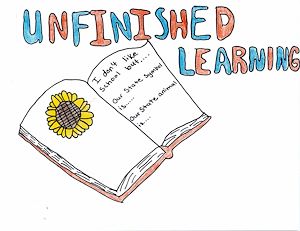 UNFINISHED
LEARNING
I don't like
school but....
Our State Symbol
is....
Our State animal
is...